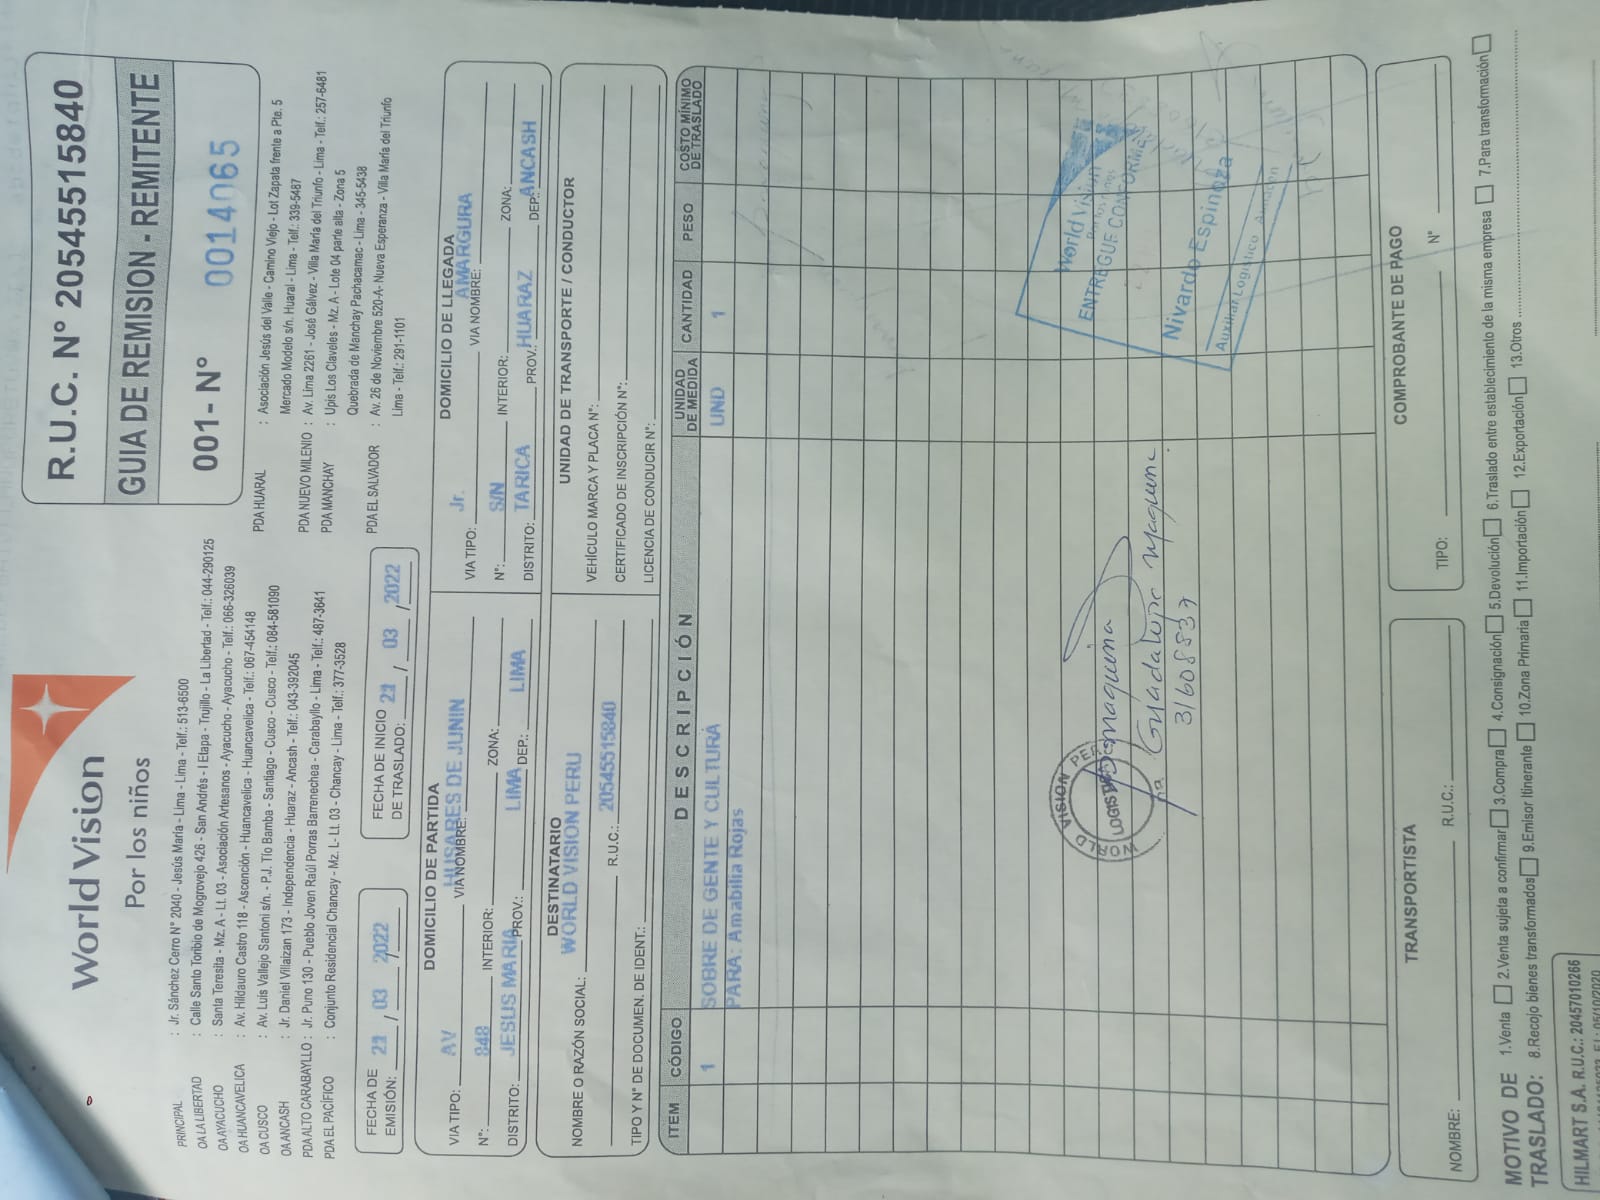 World Vision
Por los niños
R.U.C. N° 20545515840
GUIA DE REMISION - REMITENTE
001- N° 0014065
PRINCIPAL : Jr. Sánchez Cerro N° 2040 - Jesús María - Lima - Telf.: 513-6500
OA LA LIBERTAD : Calle Santo Toribio de Mogrovejo 426 - San Andrés - I Etapa - Trujillo - La Libertad - Telf.: 044-290125
OA AYACUCHO : Santa Teresita - Mz. A - Lt. 03 - Asociación Artesanos - Ayacucho - Ayacucho - Telf.: 066-326039
OA HUANCAVELICA : Av. Hildauro Castro 118 - Ascención - Huancavelica - Huancavelica - Telf.: 067-454148
OA CUSCO : Av. Luis Vallejo Santoni s/n. - P.J. Tío Bamba - Santiago - Cusco - Cusco - Telf.: 084-581090
OA ANCASH : Jr. Daniel Villaizan 173 - Independencia - Huaraz - Ancash - Telf.: 043-392045
PDA ALTO CARABAYLLO : Jr. Puno 130 - Pueblo Joven Raúl Porras Barrenechea - Carabayllo - Lima - Telf.: 487-3641
PDA EL PACÍFICO : Conjunto Residencial Chancay - Mz. L - Lt. 03 - Chancay - Lima - Telf.: 377-3528
PDA HUARAL : Asociación Jesús del Valle - Camino Viejo - Lot Zapata frente a Pte. 5
Mercado Modelo s/n. Huaral - Lima - Telf.: 339-5487
PDA NUEVO MILENIO : Av. Lima 2261 - José Gálvez - Villa María del Triunfo - Lima - Telf.: 257-6481
PDA MANCHAY : Upis Los Claveles - Mz. A - Lote 04 parte alta - Zona 5
Quebrada de Manchay Pachacamac - Lima - 345-5438
PDA EL SALVADOR : Av. 26 de Noviembre 520-A- Nueva Esperanza - Villa María del Triunfo
Lima - Telf.: 291-1101
FECHA DE EMISIÓN: 21 / 03 / 2022
FECHA DE INICIO DE TRASLADO: 21 / 03 / 2022
DOMICILIO DE PARTIDA
VIA TIPO: AV VIA NOMBRE: HUSARES DE JUNIN
N°: 848 INTERIOR: ZONA:
DISTRITO: JESUS MARIA PROV.: LIMA DEP.: LIMA
DOMICILIO DE LLEGADA
VIA TIPO: Jr. VIA NOMBRE: AMARGURA
N°: S/N INTERIOR: ZONA:
DISTRITO: TARICA PROV.: HUARAZ DEP.: ANCASH
DESTINATARIO
NOMBRE O RAZÓN SOCIAL: WORLD VISION PERU
R.U.C.: 20545515840
TIPO Y N° DE DOCUMEN. DE IDENT.:
UNIDAD DE TRANSPORTE / CONDUCTOR
VEHÍCULO MARCA Y PLACA N°:
CERTIFICADO DE INSCRIPCIÓN N°:
LICENCIA DE CONDUCIR N°:
ITEM CÓDIGO DESCRIPCIÓN UNIDAD DE MEDIDA CANTIDAD PESO COSTO MÍNIMO DE TRASLADO
1 SOBRE DE GENTE Y CULTURA UND 1
PARA: Amabilia Rojas
WORLD VISION
Guadalupe Maquina
31608837
World Vision
Por los niños
ENTREGUE CONFORME
Nivardo Espinoza
Auxiliar Logístico
TRANSPORTISTA
NOMBRE: R.U.C.:
COMPROBANTE DE PAGO
TIPO: N°
MOTIVO DE TRASLADO: 1.Venta 2.Venta sujeta a confirmar 3.Compra 4.Consignación 5.Devolución 6.Traslado entre establecimiento de la misma empresa 7.Para transformación
8.Recojo bienes transformados 9.Emisor Itinerante 10.Zona Primaria 11.Importación 12.Exportación 13.Otros
HILMART S.A. R.U.C.: 20457010266